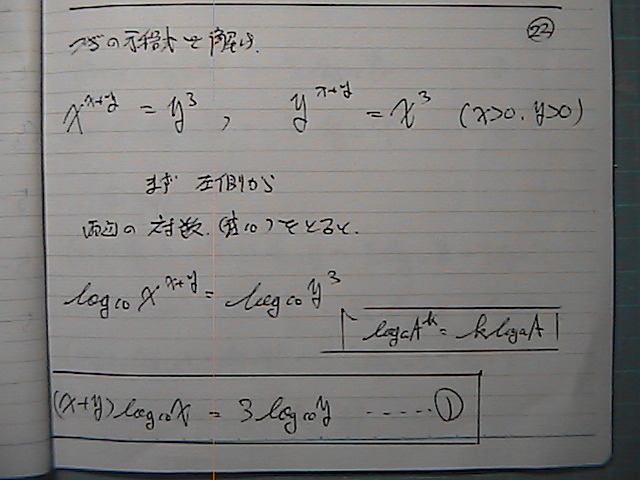 ㉒
次の方程式を解け.
x^{x+y} = y^3 , y^{x+y} = x^3 (x>0, y>0)
まず 左側から
両辺の対数.(底10)をとると.
log_{10} x^{x+y} = log_{10} y^3
log_a A^k = k log_a A
(x+y) log_{10} x = 3 log_{10} y ------ ①